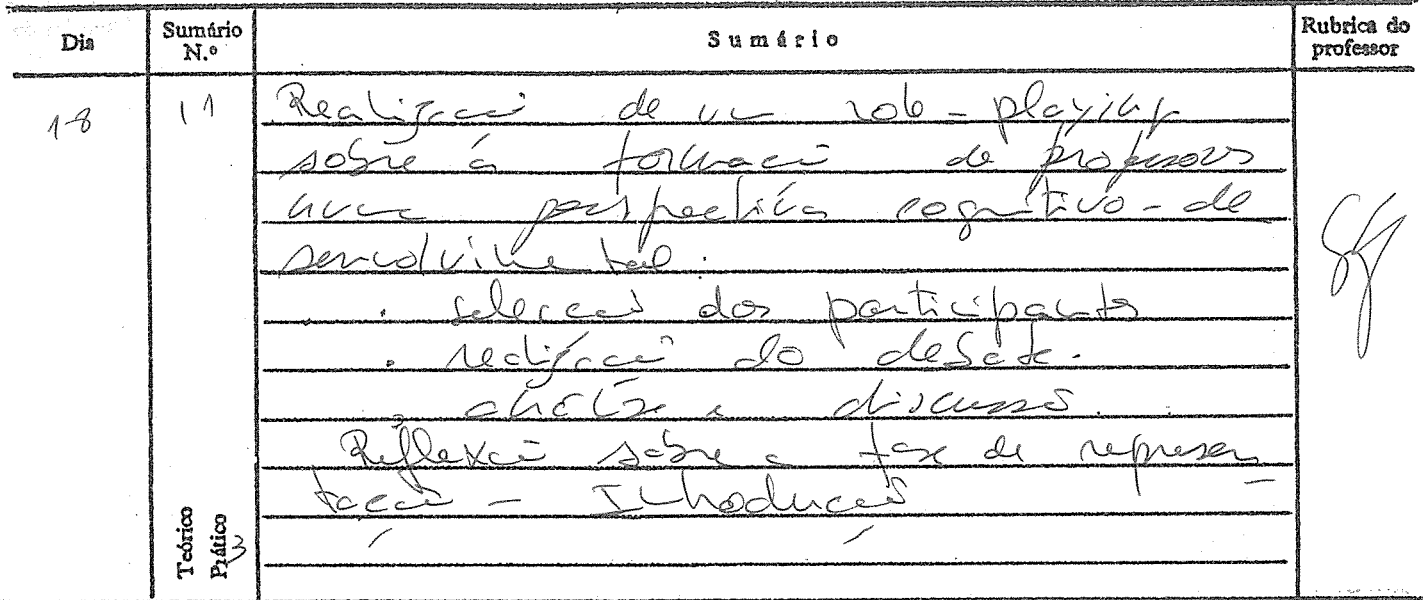 Dia
Sumário N.º
Sumário
Rubrica do professor
18
11
Realização de um role-playing
sobre a formação de professores
numa perspectiva cognitivo-de
senvolvimental.
. selecção dos participantes
. realização do debate.
. análise e discussão.
Reflexão sobre a fase de represen
tação - Introdução
Teórico
Prático
3